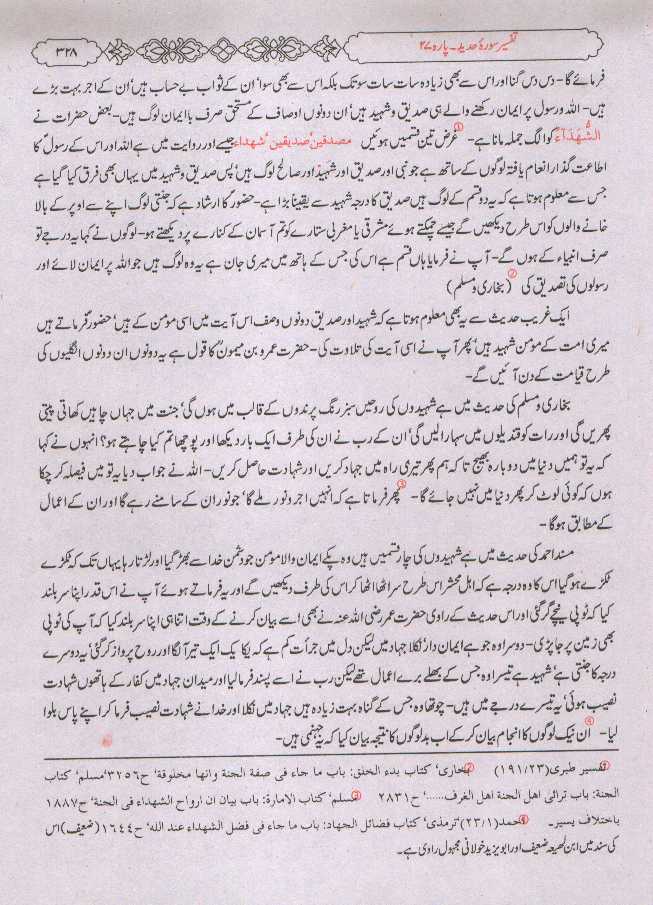 تفسیر سورۂ حدید۔ پارہ ۲۷
۳۲۸
فرمائے گا- دس دس گنا اور اس سے بھی زیادہ سات سات سو تک بلکہ اس سے بھی سوا' ان کے ثواب بے حساب ہیں' ان کے اجر بہت بڑے
ہیں- اللہ و رسول پر ایمان رکھنے والے ہی صدیق و شہید ہیں' ان دونوں اوصاف کے مستحق صرف با ایمان لوگ ہیں- بعض حضرات نے
الشُّهَدَآءُ کو الگ جملہ مانا ہے- ① غرض تین قسمیں ہوئیں مصدقین' صدیقین' شهداء جیسے اور روایت میں ہے اللہ اور اس کے رسول کا
اطاعت گذار انعام یافتہ لوگوں کے ساتھ ہے جو نبی اور صدیق اور شہید اور صالح لوگ ہیں' پس صدیق و شہید میں یہاں بھی فرق کیا گیا ہے
جس سے معلوم ہوتا ہے کہ یہ دو قسم کے لوگ ہیں صدیق کا درجہ شہید سے یقیناً بڑا ہے- حضورؐ کا ارشاد ہے کہ جنتی لوگ اپنے سے اوپر کے بالا
خانے والوں کو اس طرح دیکھیں گے جیسے چمکتے ہوئے مشرقی یا مغربی ستارے کو تم آسمان کے کنارے پر دیکھتے ہو- لوگوں نے کہا یہ درجے تو
صرف انبیاء کے ہوں گے- آپ نے فرمایا ہاں قسم ہے اس کی جس کے ہاتھ میں میری جان ہے یہ وہ لوگ ہیں جو اللہ پر ایمان لائے اور
رسولوں کی تصدیق کی ② (بخاری و مسلم)
ایک غریب حدیث سے یہ بھی معلوم ہوتا ہے کہ شہید اور صدیق دونوں وصف اس آیت میں اسی مؤمن کے ہیں' حضورؐ فرماتے ہیں
میری امت کے مؤمن شہید ہیں' پھر آپ نے اسی آیت کی تلاوت کی- حضرت عمرو بن میمونؒ کا قول ہے یہ دونوں ان دونوں انگلیوں کی
طرح قیامت کے دن آئیں گے-
بخاری و مسلم کی حدیث میں ہے شہیدوں کی روحیں سبز رنگ پرندوں کے قالب میں ہوں گی' جنت میں جہاں چاہیں کھاتی پیتی
پھریں گی اور رات کو قندیلوں میں سہارا لیں گی' ان کے رب نے ان کی طرف ایک بار دیکھا اور پوچھا تم کیا چاہتے ہو؟ انہوں نے کہا
کہ یہ تو ہمیں دنیا میں دوبارہ بھیج تا کہ ہم پھر تیری راہ میں جہاد کریں اور شہادت حاصل کریں- اللہ نے جواب دیا یہ تو میں فیصلہ کر چکا
ہوں کہ کوئی لوٹ کر پھر دنیا میں نہیں جائے گا- ③ پھر فرماتا ہے کہ انہیں اجر و نور ملے گا' جو نور ان کے سامنے رہے گا اور ان کے اعمال
کے مطابق ہوگا-
مسند احمد کی حدیث میں ہے شہیدوں کی چار قسمیں ہیں وہ پکے ایمان والا مومن جو دشمن خدا سے بھڑ گیا اور لڑتا رہا یہاں تک کہ ٹکڑے
ٹکڑے ہو گیا اس کا وہ درجہ ہے کہ اہل محشر اس طرح سر اٹھا اٹھا کر اس کی طرف دیکھیں گے اور یہ فرماتے ہوئے آپ نے اس قدر اپنا سر بلند
کیا کہ ٹوپی نیچے گر گئی اور اس حدیث کے راوی حضرت عمر رضی اللہ عنہ نے بھی اسے بیان کرنے کے وقت اتنا ہی اپنا سر بلند کیا کہ آپ کی ٹوپی
بھی زمین پر جا پڑی- دوسرا وہ جو ہے ایمان دار' نکلا جہاد میں لیکن دل میں جرأت کم ہے کہ یکا یک ایک تیر آ لگا اور روح پرواز کر گئی' یہ دوسرے
درجہ کا جنتی ہے' شہید ہے تیسرا وہ جس کے بھلے برے اعمال تھے لیکن رب نے اسے پسند فرما لیا اور میدان جہاد میں کفار کے ہاتھوں شہادت
نصیب ہوئی' یہ تیسرے درجے میں ہیں- چوتھا وہ جس کے گناہ بہت زیادہ ہیں جہاد میں نکلا اور خدا نے شہادت نصیب فرما کر اپنے پاس بلوا
لیا- ④ ان نیک لوگوں کا انجام بیان کر کے اب بد لوگوں کا نتیجہ بیان کیا کہ یہ جہنمی ہیں-
① تفسیر طبری (۲۳/۱۹۱) ② بخاری' کتاب بدء الخلق: باب ما جاء فی صفة الجنة وانها مخلوقة' ح۳۲۵۶' مسلم' کتاب
الجنة: باب ترائی اهل الجنة اهل الغرف......' ح۲۸۳۱ ③ مسلم' کتاب الامارة: باب بیان ان ارواح الشهداء فی الجنة' ح۱۸۸۷
باختلاف یسیر۔ ④ احمد (۱/۲۳)' ترمذی' کتاب فضائل الجهاد: باب ما جاء فی فضل الشهداء عند الله' ح۱۶۴۴ (ضعیف) اس
کی سند میں ابن لھیعہ ضعیف اور ابو یزید خولانی مجہول راوی ہے۔